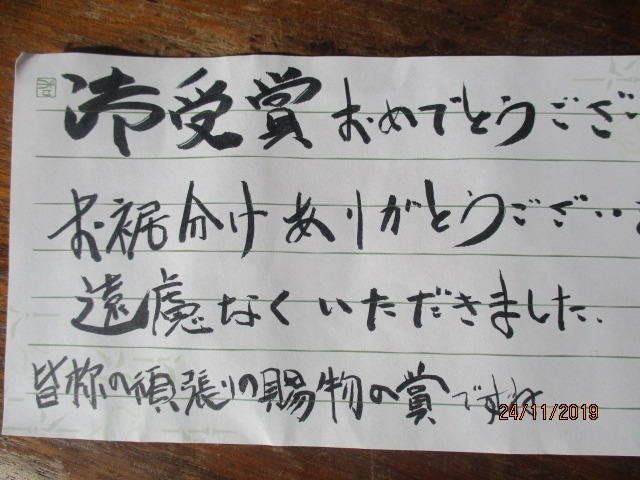 御受賞おめでとうござい
お裾分けありがとうござい
遠慮なくいただきました.
皆様の頑張りの賜物の賞ですね
24/11/2019